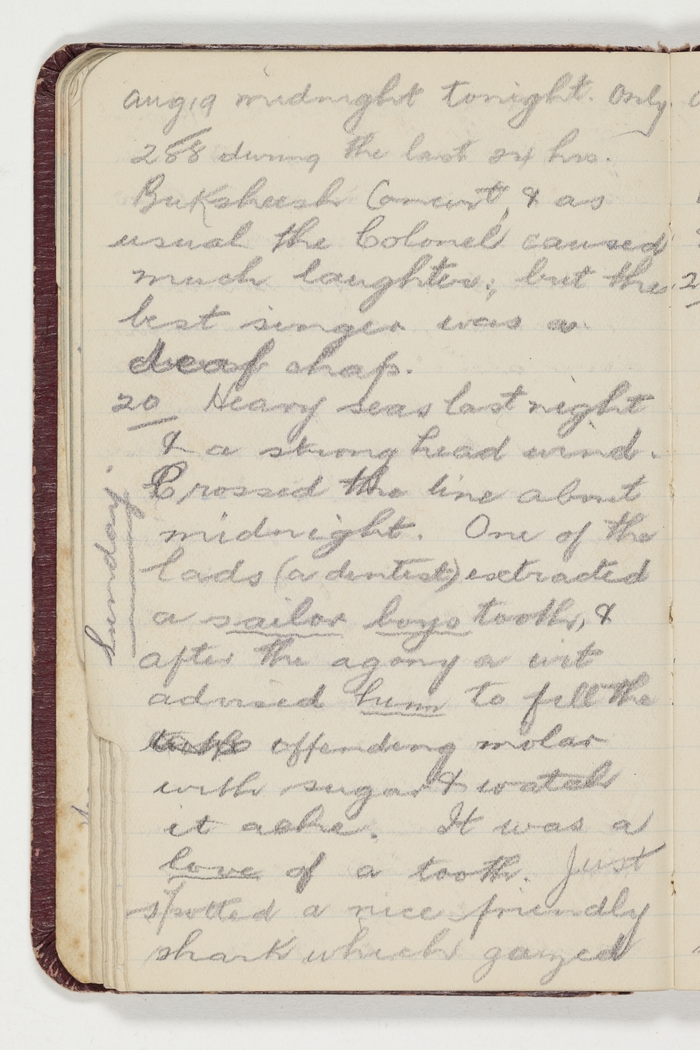 Aug 19 midnight tonight. Only
288 during the last 24 hrs.
Buksheesh Concert, & as
usual the Colonel caused
much laughter; but the
best singer was a
deaf chap.
20 Heavy seas last night
& a strong head wind.
Crossed the line about
midnight. One of the
lads (a dentist) extracted
a sailor boys tooth, &
after the agony a wit
advised him to fill the
offending molar
with sugar & watch
it ache. It was a
love of a tooth. Just
spotted a nice friendly
shark which gazed
Sunday.